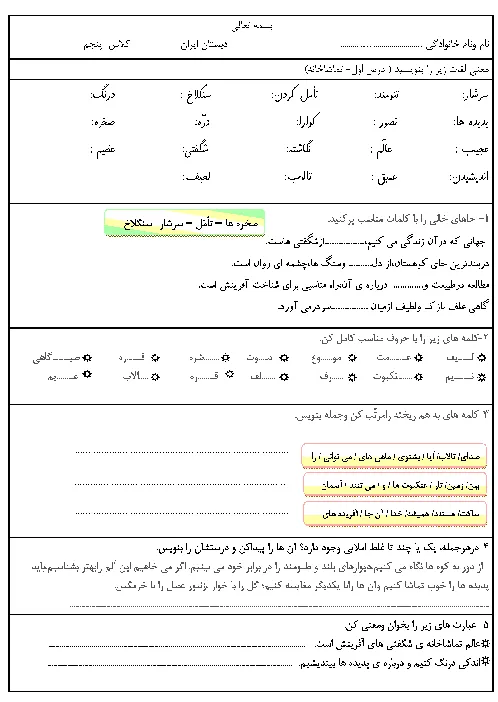 بسمه تعالی
نام ونام خانوادگی ........................ دبستان ایران کلاس پنجم
معنی لغات زیر را بنویسید ( درس اول- تماشاخانه)
سرشار: تنومند: تأمل کردن: سنگلاخ : درنگ:
پدیده ها: تصور : گوارا: درّه: صخره:
عجیب : عالَم : نگاشته: شگفتی: عظیم :
اندیشیدن: عمیق : تالاب: لطیف:
۱- جاهای خالی را با کلمات مناسب پرکنید.
صخره ها – تأمّل – سرشار سنگلاخ
جهانی که درآن زندگی می کنیم،................ازشگفتی هاست.
درمیان این جای کوهستان،از دل......... وسنگ ها،چشمه ای روان است.
مطالعه درطبیعت و............. درباره ی آن،راه مناسبی برای شناخت آفرینش است.
گاهی علف نازک ولطیف اززمین ...............سردرمی آورد.
۲-کلمه های زیر را با حروف مناسب کامل کن.
لـ.....یف عـ.....مت مو.....وع د.....وت .....شره قـ.....ره صبـ.....گاهی
نـ.....یم .....نکبوت .....رف .....لف قـ.....ره .....الاب عـ.....یم
۳ کلمه های به هم ریخته رامرتّب کن وجمله بنویس.
صدای/ تالاب/ آیا / بشنوی / ماهی های / می توانی / را
بین/ زمین/ تار / عنکبوت ها / و / می تنند / آسمان
ساکت/ هستند/ همیشه/ خدا / آن جا / آفریده های
۴ درهرجمله، یک یا چند تا غلط املایی وجود دارد؟ آن ها را پیداکن و درستشان را بنویس.
از دور به کوه ها نگاه می کنیم،دیوارهای بلند و طنومند را در برابر خود می بینیم. اگر می خاهیم این آلم رابهتر بشناسیم،باید
پدیده ها را خوب تماشا کنیم وآن ها رابا یکدیگر مقایسه کنیم؛ گل را با خوار ،زنبور عصل را با خرمگس.
۵ عبارت های زیر را بخوان ومعنی کن.
عالم تماشاخانه ی شگفتی های آفرینش است.
اندکی درنگ کنیم و درباره ی پدیده ها بیندیشیم.